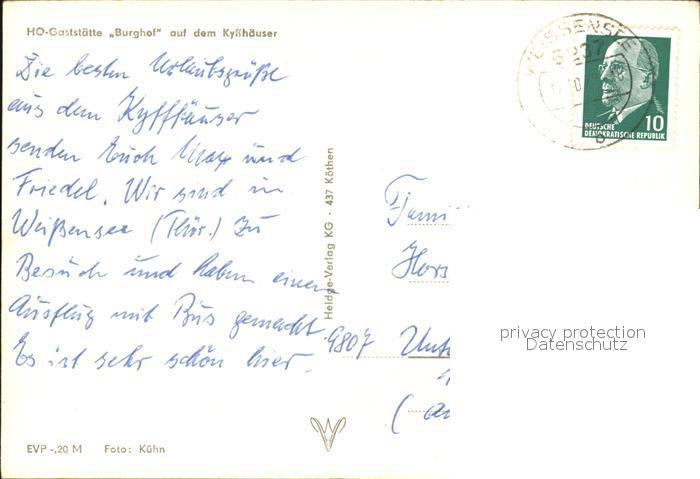 HO-Gaststätte „Burghof" auf dem Kyffhäuser
Die besten Urlaubsgrüße
aus dem Kyffhäuser
senden Euch Max und
Friedel. Wir sind in
Weißensee (Thür.) zu
Besuch und haben einen
Ausflug mit Bus gemacht.
Es ist sehr schön hier.
EVP -,20 M Foto: Kühn
Heldge-Verlag KG · 437 Köthen
WEISSENSEE
5237
b
10
DEUTSCHE
DEMOKRATISCHE REPUBLIK
Fami
Hors
9807 Unt
(
privacy protection
Datenschutz